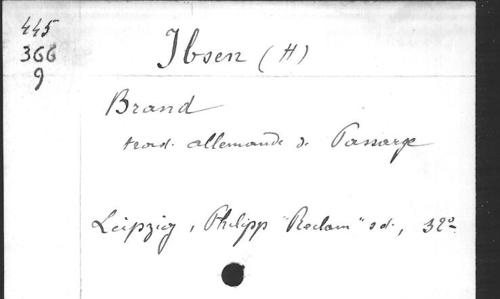 445
366
9
Ibsen (H)
Brand
trad. allemande de Passarge
Leipzig, Philipp "Reclam" s d., 32º